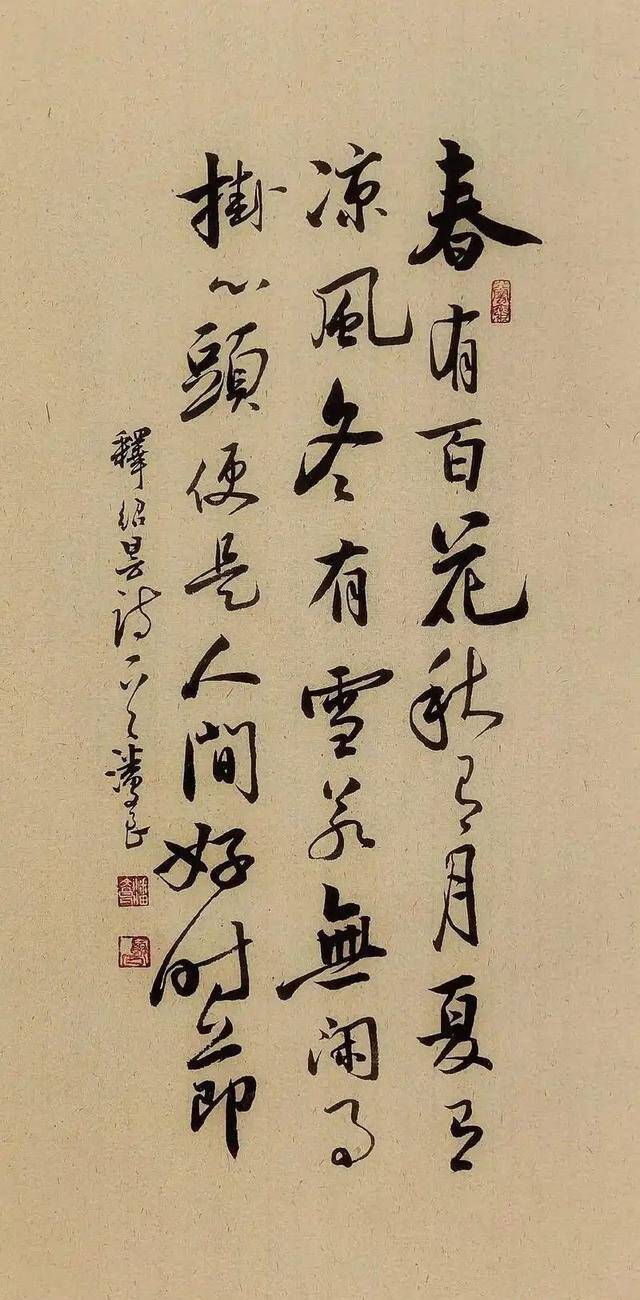 春有百花秋有月夏有
凉風冬有雪若無闲事
掛心頭便是人間好时節
釋紹昙詩